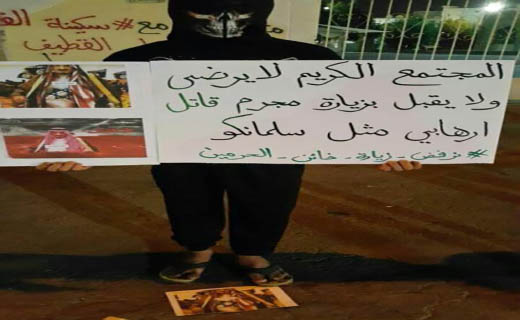 مع #سكينة
القطيف
المجتمع الكريم لايرضى
ولا يقبل بزيارة مجرم قاتل
ارهابي مثل سلمانكو
#نرفض_زيارة_خائن_الحرمين